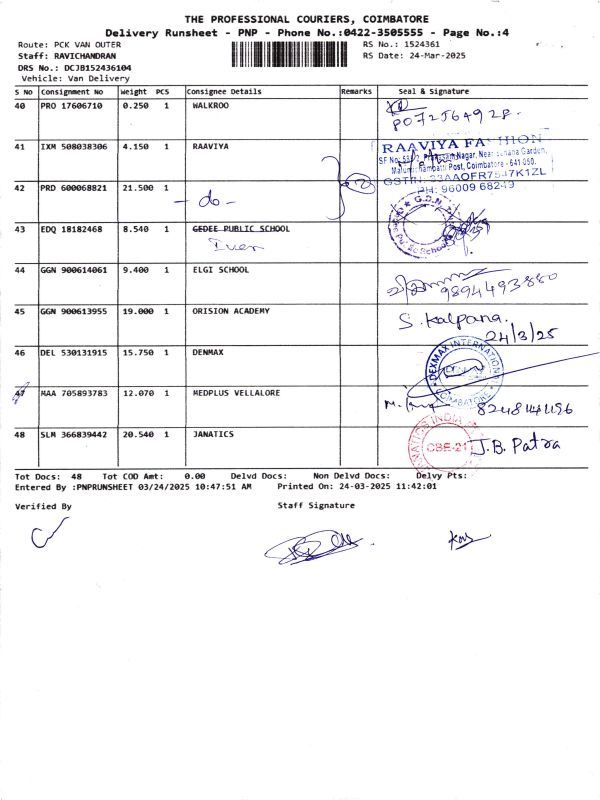 THE PROFESSIONAL COURIERS, COIMBATORE
Delivery Runsheet - PNP - Phone No.:0422-3505555 - Page No.:4
Route: PCK VAN OUTER RS No.: 1524361
Staff: RAVICHANDRAN RS Date: 24-Mar-2025
DRS No.: DCJB152436104
Vehicle: Van Delivery
S NO Consignment No Weight PCS Consignee Details Remarks Seal & Signature
40 PRO 17606710 0.250 1 WALKROO
41 IXM 508038306 4.150 1 RAAVIYA
RAAVIYA FASHION
Coimbatore - 641 050.
42 PRD 600068821 21.500 1
PH: 96009 68249
- do -
43 EDQ 18182468 8.540 1 GEDEE PUBLIC SCHOOL
44 GGN 900614061 9.400 1 ELGI SCHOOL
9894493880
45 GGN 900613955 19.000 1 ORISION ACADEMY
S. Kalpana.
24/3/25
46 DEL 530131915 15.750 1 DENMAX
DEXMAX INTERNATIONAL
COIMBATORE
47 MAA 705893783 12.070 1 MEDPLUS VELLALORE
48 SLM 366839442 20.540 1 JANATICS
CBE-21
J.B. Patra
Tot Docs: 48 Tot COD Amt: 0.00 Delvd Docs: Non Delvd Docs: Delvy Pts:
Entered By :PNPRUNSHEET 03/24/2025 10:47:51 AM Printed On: 24-03-2025 11:42:01
Verified By Staff Signature